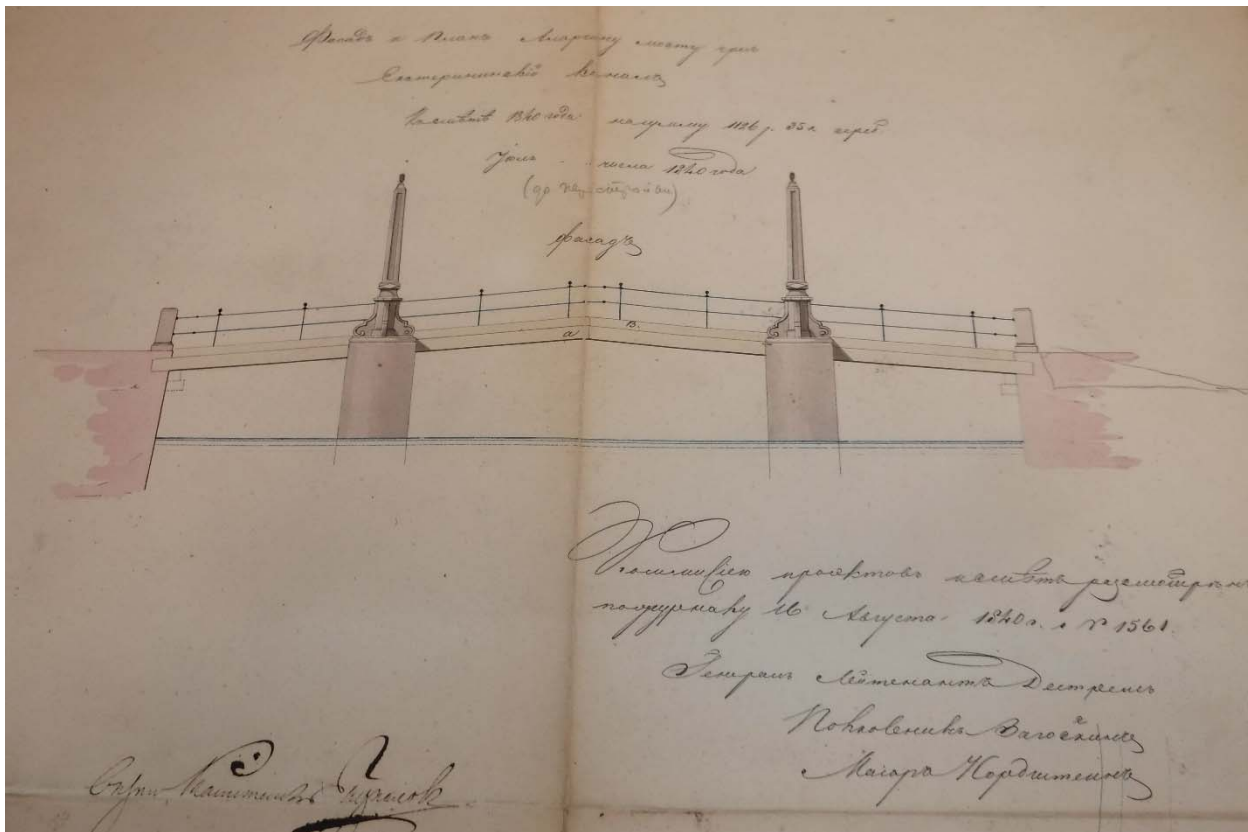 Фасадъ и Планъ Аларчину мосту чрезъ
Екатерининскій каналъ
1840 года на сумму 1126 р. 35 к. сереб.
Іюль числа 1840 года
фасадъ
а
в.
Коммисіею проектовъ и смѣтъ разсмотрѣнъ
по журналу 16 Августа 1840 г. № 1561.
Генералъ Лейтенантъ Дестремъ
Полковникъ Загоскинъ
Маіоръ Нордштейнъ